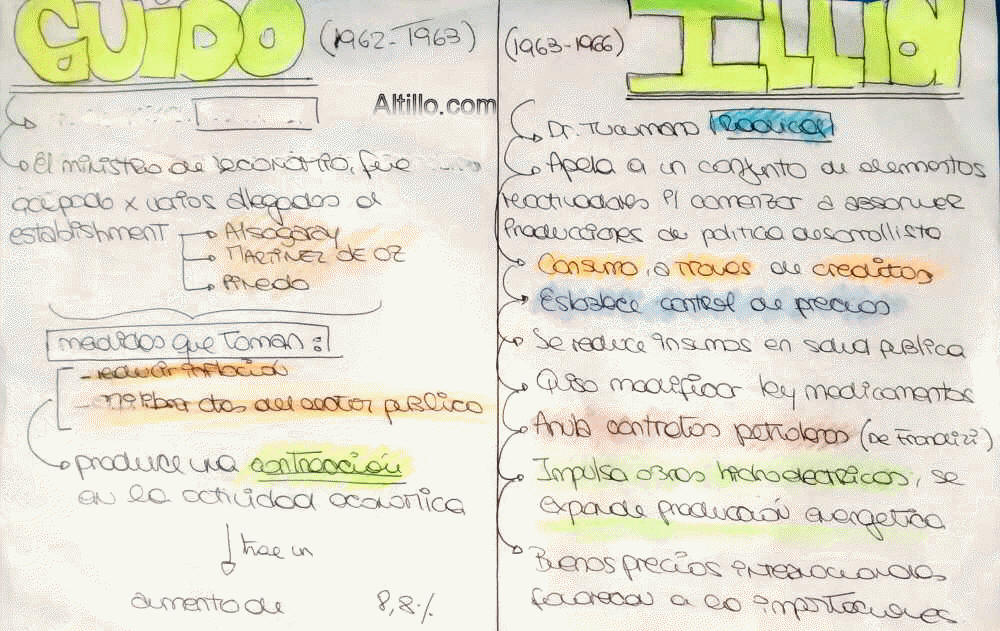 GUIDO (1962-1963)
Altillo.com
El ministro de economía, fue
ocupado x varios allegados al
establishment
Alsogaray
MARTINEZ DE OZ
Pinedo
medidas que toman:
- reducir inflación
del sector publico
produce una contracción
en la actividad económica
trae un
aumento de 8,8%
(1963-1966) ILLIA
Dr. Tucumano Radical
Apela a un conjunto de elementos
reactivadores p/ comenzar a absorver
Producciones de politica desarrollista
Consumo, a traves de creditos
Establece control de precios
Se reduce insumos en salud publica
Quiso modificar ley medicamentos
Anula contratos petroleros (de Frondizi)
Impulsa obras hidroelectricas, se
expande producción energetica
Buenos precios internacionales
favorecen a las importaciones